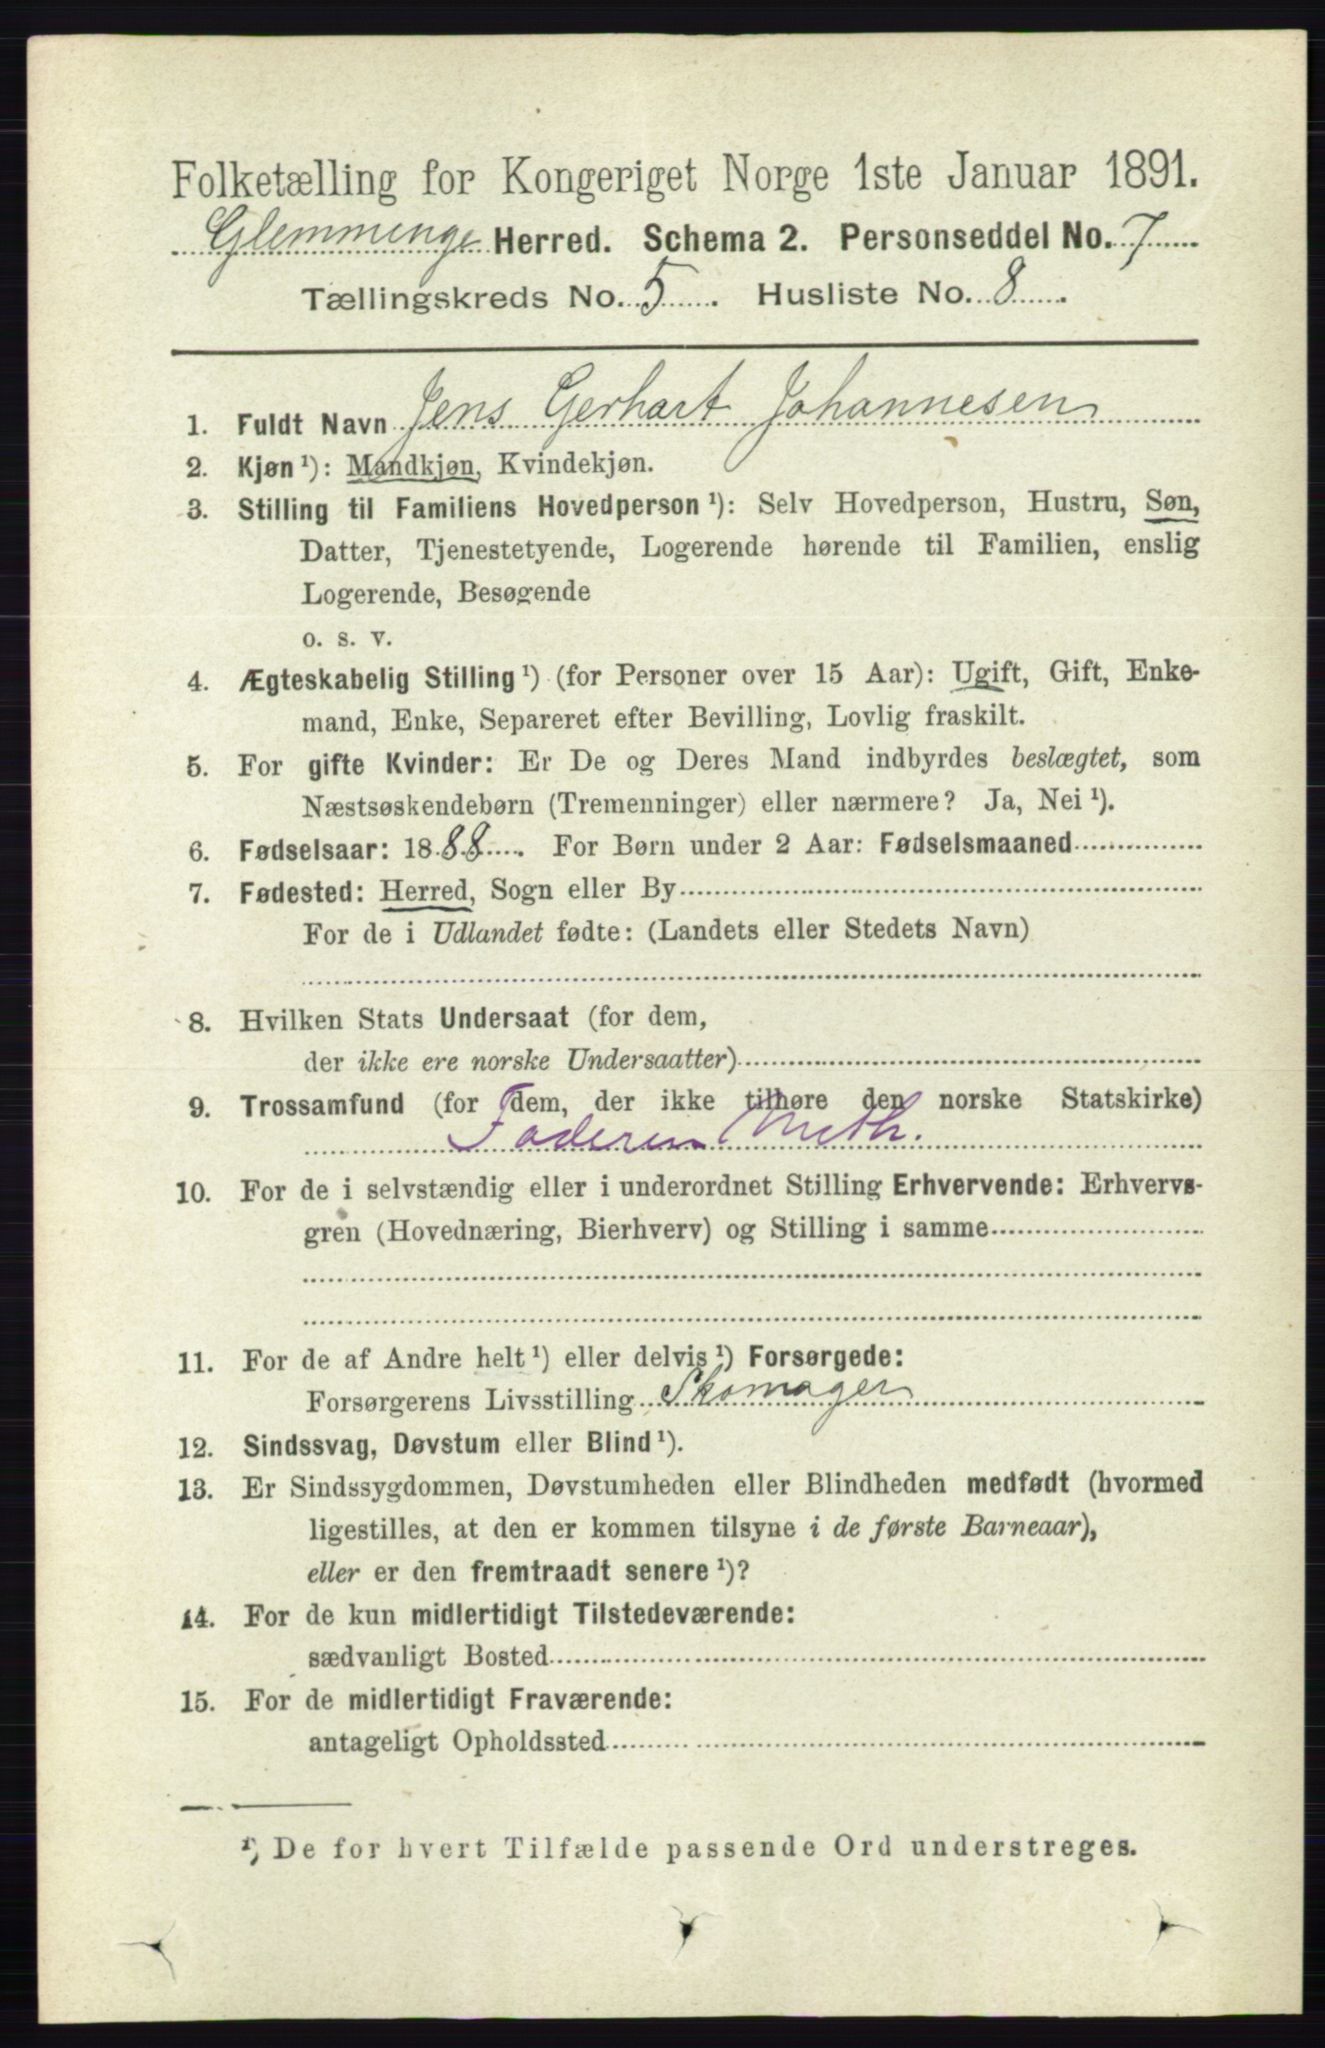 Folketælling for Kongeriget Norge 1ste Januar 1891.
Glemminge Herred. Schema 2. Personseddel No. 7
Tællingskreds No. 5. Husliste No. 8.
1. Fuldt Navn Jens Gerhart Johannesen
2. Kjøn ¹): Mandkjøn, Kvindekjøn.
3. Stilling til Familiens Hovedperson ¹): Selv Hovedperson, Hustru, Søn,
Datter, Tjenestetyende, Logerende hørende til Familien, enslig
Logerende, Besøgende
o. s. v.
4. Ægteskabelig Stilling ¹) (for Personer over 15 Aar): Ugift, Gift, Enke-
mand, Enke, Separeret efter Bevilling, Lovlig fraskilt.
5. For gifte Kvinder: Er De og Deres Mand indbyrdes beslægtet, som
Næstsøskendebørn (Tremenninger) eller nærmere? Ja, Nei ¹).
6. Fødselsaar: 1888. For Børn under 2 Aar: Fødselsmaaned
7. Fødested: Herred, Sogn eller By
For de i Udlandet fødte: (Landets eller Stedets Navn)
8. Hvilken Stats Undersaat (for dem,
der ikke ere norske Undersaatter)
9. Trossamfund (for dem, der ikke tilhøre den norske Statskirke)
Faderen Meth.
10. For de i selvstændig eller i underordnet Stilling Erhvervende: Erhvervs-
gren (Hovednæring, Bierhverv) og Stilling i samme
11. For de af Andre helt ¹) eller delvis ¹) Forsørgede:
Forsørgerens Livsstilling Skomager
12. Sindssvag, Døvstum eller Blind ¹).
13. Er Sindssygdommen, Døvstumheden eller Blindheden medfødt (hvormed
ligestilles, at den er kommen tilsyne i de første Barneaar),
eller er den fremtraadt senere ¹)?
14. For de kun midlertidigt Tilstedeværende:
sædvanligt Bosted
15. For de midlertidigt Fraværende:
antageligt Opholdssted
¹) De for hvert Tilfælde passende Ord understreges.